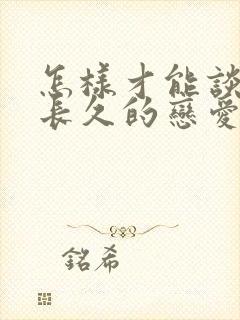 怎樣才能談
長久的戀愛
銘希